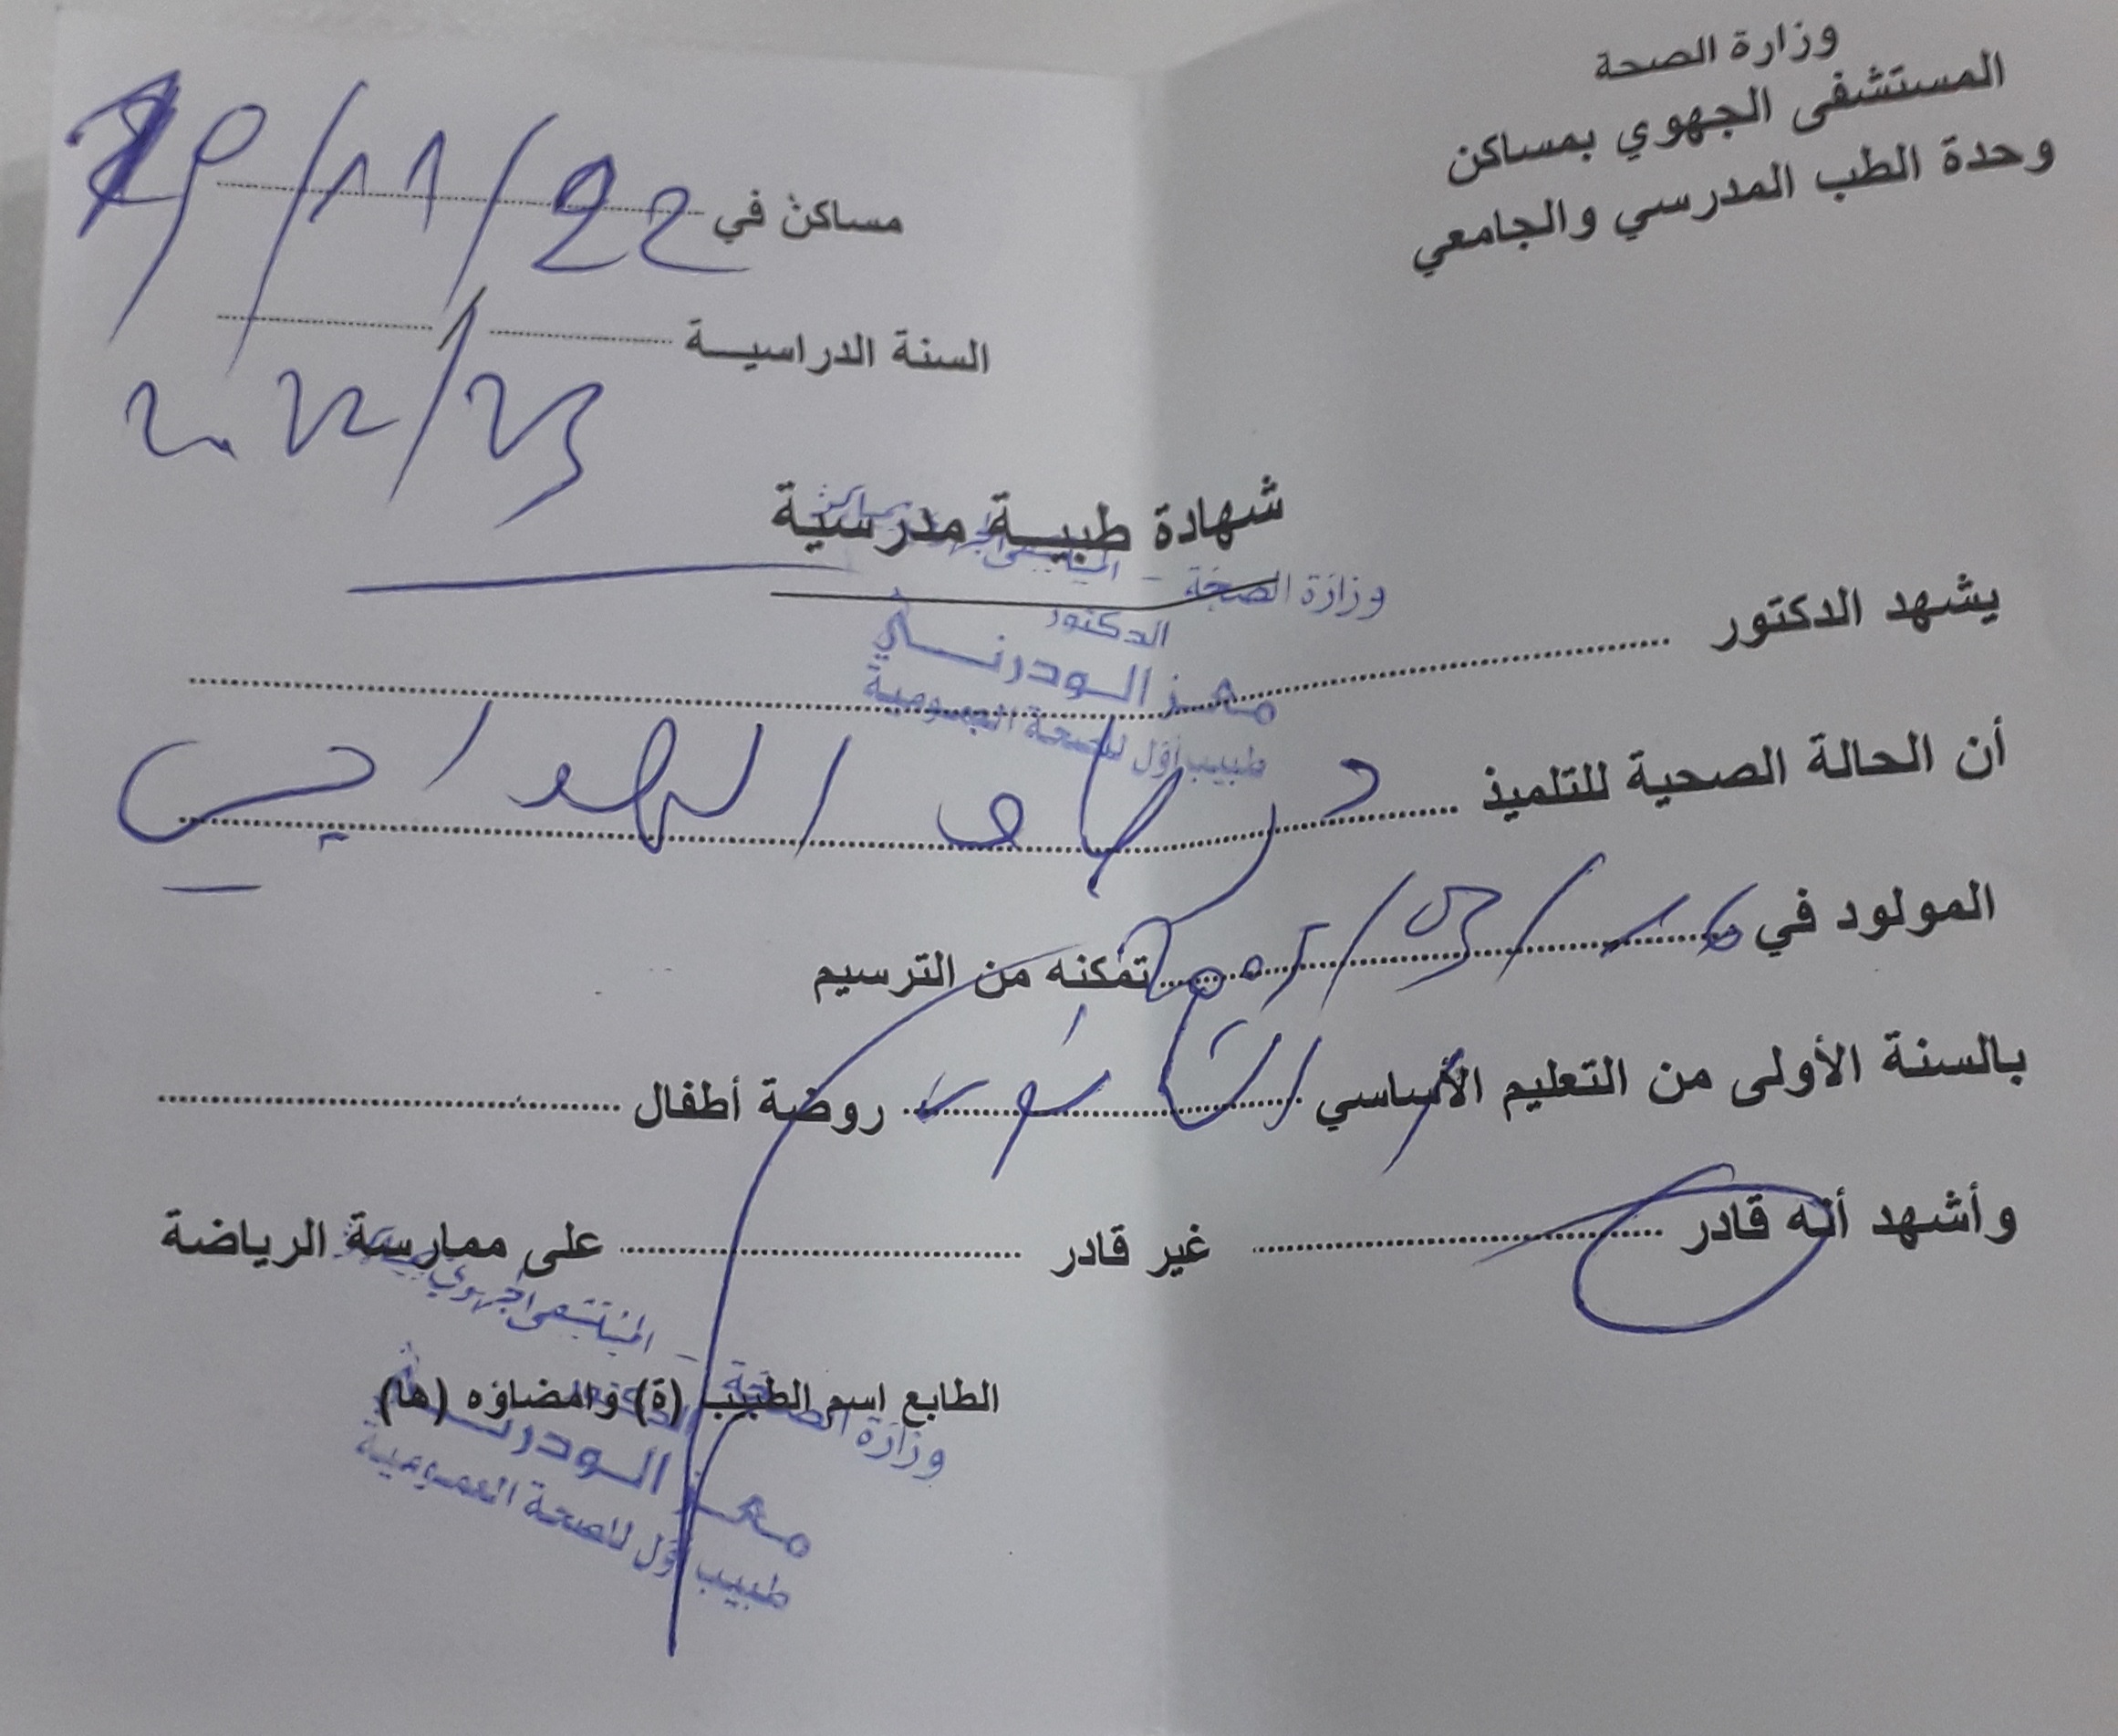 وزارة الصحة
المستشفى الجهوي بمساكن
وحدة الطب المدرسي والجامعي
مساكن في 29/11/22
السنة الدراسية
2022/23
شهادة طبية مدرسية
وزارة الصحة - المستشفى الجهوي بمساكن
الدكتور
معز الودرني
طبيب أول للصحة العمومية
يشهد الدكتور
أن الحالة الصحية للتلميذ
المولود في 03/2005 تمكنه من الترسيم
بالسنة الأولى من التعليم الأساسي روضة أطفال
وأشهد أنه قادر غير قادر على ممارسة الرياضة
الطابع اسم الطبيب (ة) وامضاؤه (ها)
وزارة الصحة - المستشفى الجهوي بمساكن
الدكتور
معز الودرني
طبيب أول للصحة العمومية